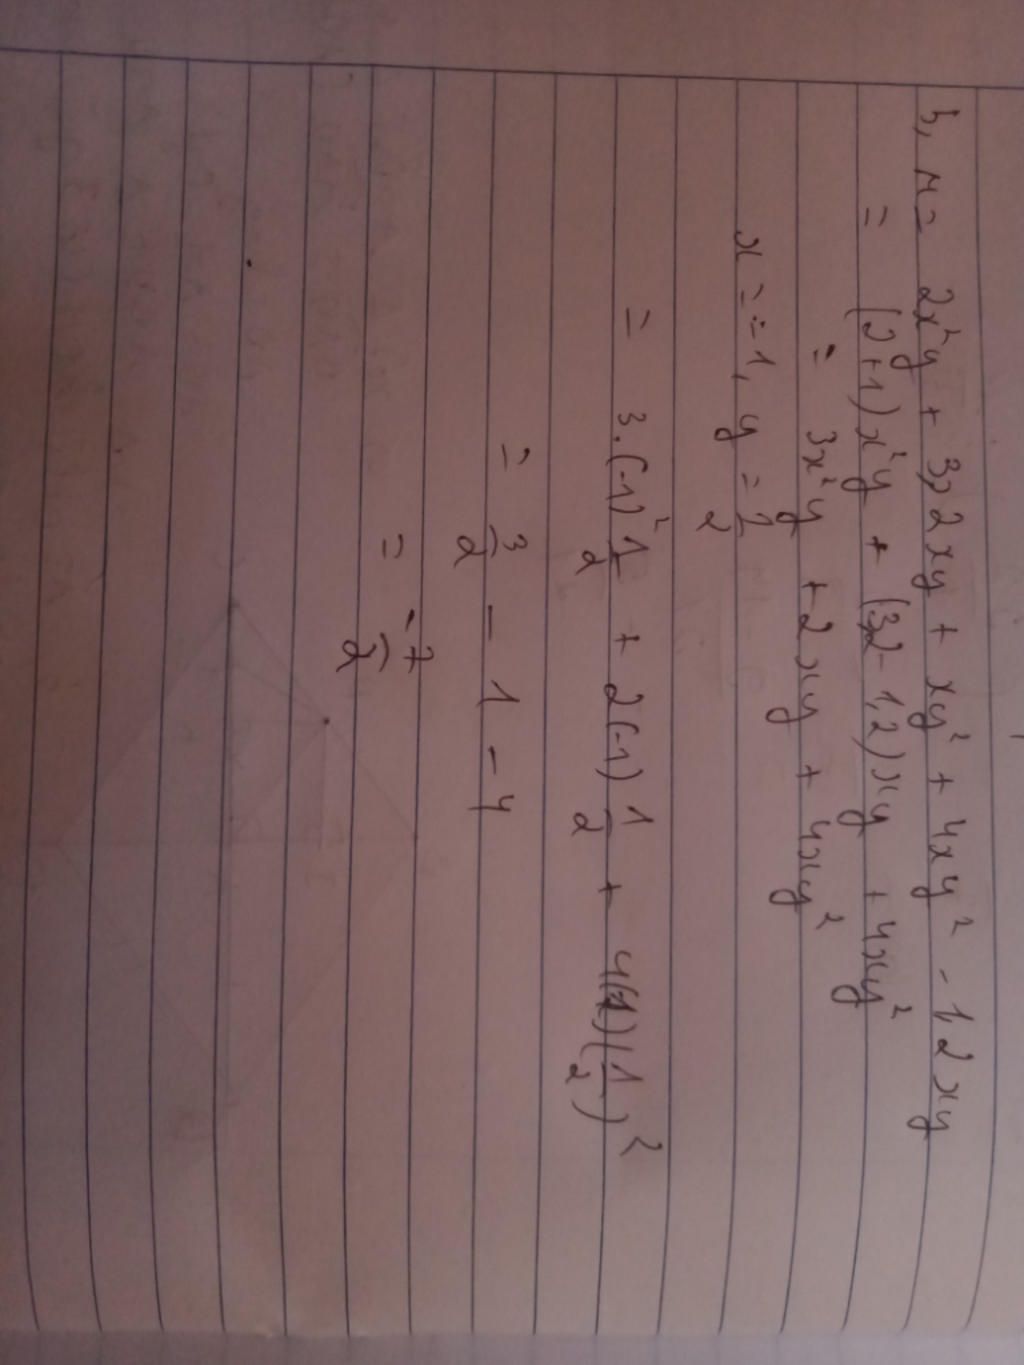 b, M = 2x²y + 3,2xy + xy² + 4xy² - 1,2xy
= (2+1)x²y + (3,2-1,2)xy + 4xy²
= 3x²y + 2xy + 4xy²
x = -1, y = 1/2
= 3.(-1)² 1/2 + 2(-1) 1/2 + 4(-1)(1/2)²
= 3/2 - 1 - 4
= -7/2